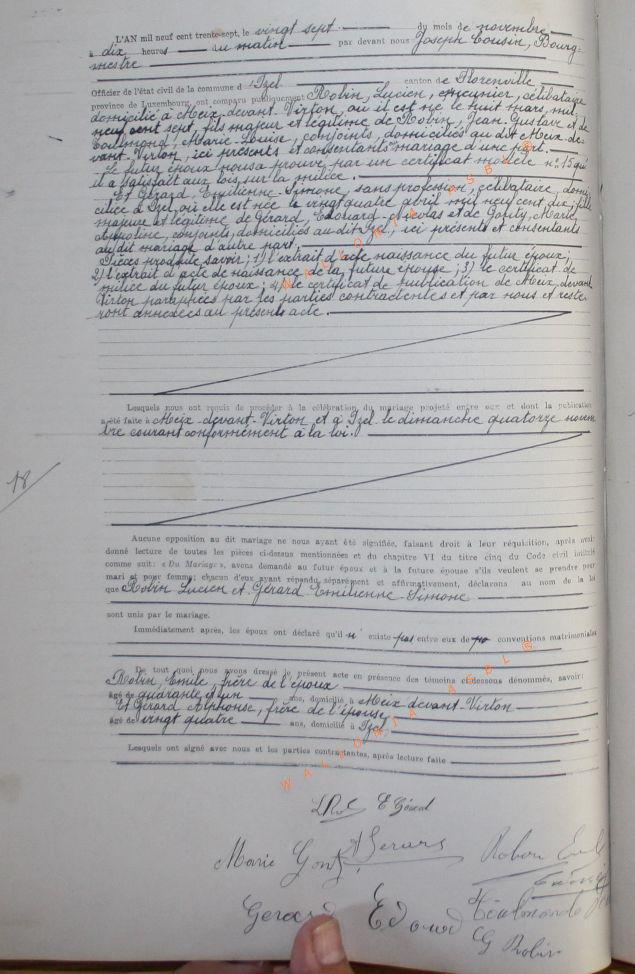 L'AN mil neuf cent trente-sept, le vingt sept du mois de novembre
à dix heures du matin par devant nous Joseph Cousin, Bourg-
mestre
Officier de l'état civil de la commune d'Izel canton de Florenville
province de Luxembourg, ont comparu publiquement Robin, Lucien, meunier, célibataire
domicilié à Meix-devant-Virton, où il est né le huit mars mil
neuf cent sept, fils majeur et légitime de Robin, Jean-Gustave et de
Marie-Louise, conjoints, domiciliés au dit Meix-de-
vant-Virton, ici présents et consentants au mariage d'une part.
Le futur époux nous a prouvé par un certificat modèle n° 15 qu'
il a satisfait aux lois sur la milice.
Et Gérard, Emilienne-Simone, sans profession, célibataire, domi
ciliée à Izel, où elle est née le vingt quatre avril mil neuf cent dix, fille
majeure et légitime de Gérard, Edouard-Nicolas et de Marie
conjoints, domiciliés au dit Izel, ici présents et consentants
au dit mariage d'autre part.
Pièces produites savoir; 1) l'extrait d'acte naissance du futur époux;
2) l'extrait d'acte de naissance de la future épouse; 3) le certificat de
milice du futur époux; 4) le certificat de publication de Meix-devant
Virton paraphées par les parties contractantes et par nous et reste-
ront annexées au présent acte.
Lesquels nous ont requis de procéder à la célébration du mariage projeté entre eux et dont la publication
a été faite à Meix-devant-Virton et à Izel le dimanche quatorze novem
bre courant conformément à la loi.
18
Aucune opposition au dit mariage ne nous ayant été signifiée, faisant droit à leur réquisition, après avoir
donné lecture de toutes les pièces ci-dessus mentionnées et du chapitre VI du titre cinq du Code civil intitulé
comme suit: « Du Mariage », avons demandé au futur époux et à la future épouse s'ils veulent se prendre pour
mari et pour femme; chacun d'eux ayant répondu séparément et affirmativement, déclarons au nom de la loi
que Robin Lucien et Gérard Emilienne-Simone
sont unis par le mariage.
Immédiatement après, les époux ont déclaré qu'il n'existe pas entre eux de conventions matrimoniales
De tout quoi nous avons dressé le présent acte en présence des témoins ci-dessous dénommés, savoir:
Robin, Emile, frère de l'époux
âgé de quarante et un ans, domicilié à Meix devant-Virton
Et Gérard Alphonse, frère de l'épouse
âgé de vingt quatre ans, domicilié à Izel
Lesquels ont signé avec nous et les parties contractantes, après lecture faite
WALLONIA ASBL ®
WALLONIA ASBL ®
E Gérard
Marie
Gerard Edouard
G Robin